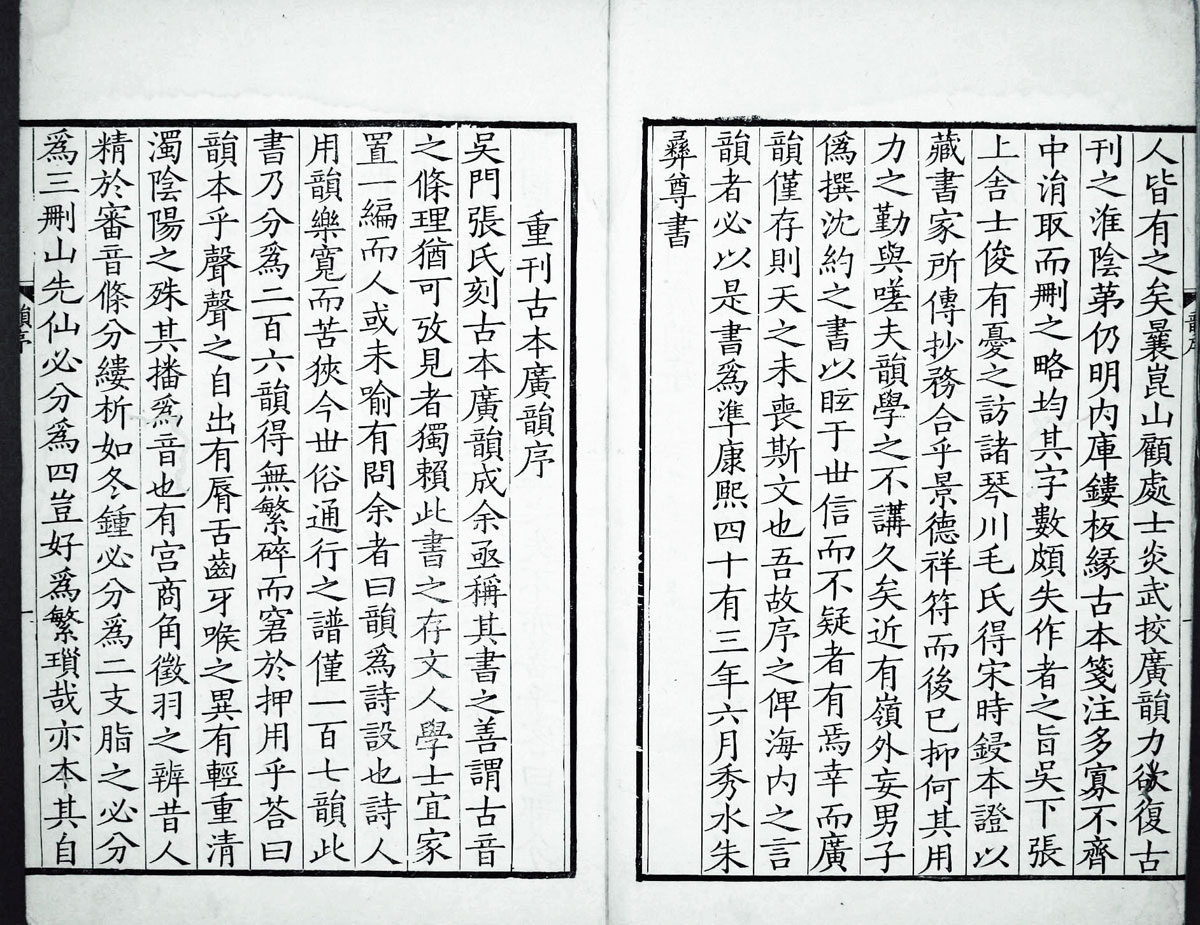 人皆有之矣曩崑山顧處士炎武挍廣韻力欲復古
刊之淮陰苐仍明内庫鏤板緣古本箋注多寡不齊
中㳙取而刪之略均其字數頗失作者之旨吳下張
上舎士俊有憂之訪諸琴川毛氏得宋時鋟本證以
藏書家所傳抄務合乎景德祥符而後已抑何其用
力之勤與嗟夫韻學之不講久矣近有嶺外妄男子
僞撰沈約之書以眩于丗信而不疑者有焉幸而廣
韻僅存則天之未喪斯文也吾故序之俾海内之言
韻者必以是書爲準康熙四十有三年六月秀水朱
彝尊書
韻序
一
重刊古本廣韻序
吳門張氏刻古本廣韻成余亟稱其書之善謂古音
之條理猶可攷見者獨賴此書之存文人學士宜家
置一編而人或未喻有問余者曰韻爲詩設也詩人
用韻樂寬而苦狹今丗俗通行之譜僅一百七韻此
書乃分爲二百六韻得無繁碎而窘於押用乎荅曰
韻本乎聲聲之自出有脣舌齒牙喉之異有輕重清
濁陰陽之殊其播爲音也有宫商角徵羽之辨昔人
精於審音條分縷析如冬鍾必分爲二支脂之必分
爲三刪山先仙必分爲四豈好爲繁瑣哉亦本其自
韻序
一